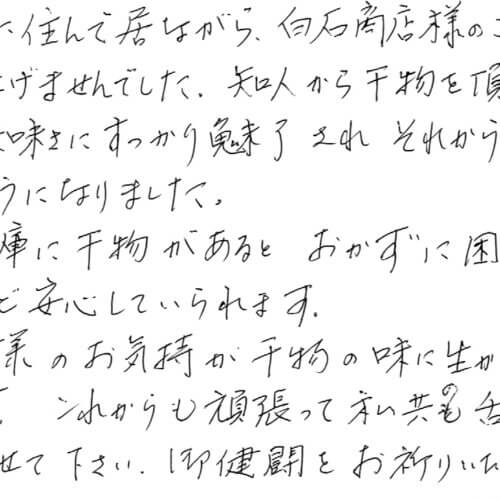 に住んで居ながら、白石商店様の
げませんでした．知人から干物を頂
味さにすっかり魅了され それから
うになりました。
庫に干物があると おかずに困
ど安心していられます．
様のお気持が干物の味に生か
これからも頑張って私共の舌
せて下さい．御健闘をお祈りいた